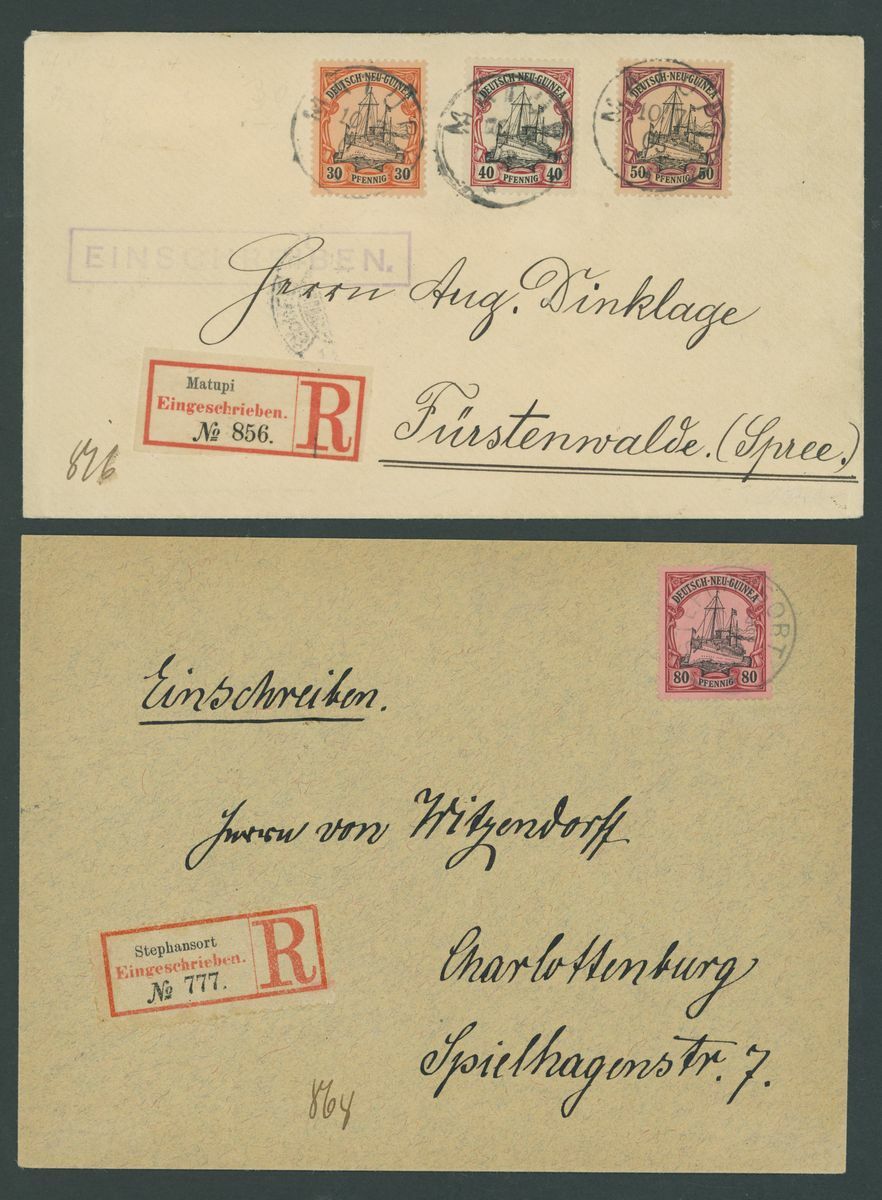 DEUTSCH-NEU-GUINEA
30 PFENNIG 30
DEUTSCH-NEU-GUINEA
40 PFENNIG 40
DEUTSCH-NEU-GUINEA
50 PFENNIG 50
EINSCHREIBEN.
Herrn Aug. Dinklage
Fürstenwalde. (Spree.)
Matupi
Eingeschrieben.
№ 856.
R
DEUTSCH-NEU-GUINEA
80 PFENNIG 80
Einschreiben.
Herrn von Witzendorff
Charlottenburg
Spielhagenstr. 7.
Stephansort
Eingeschrieben.
№ 777.
R
864